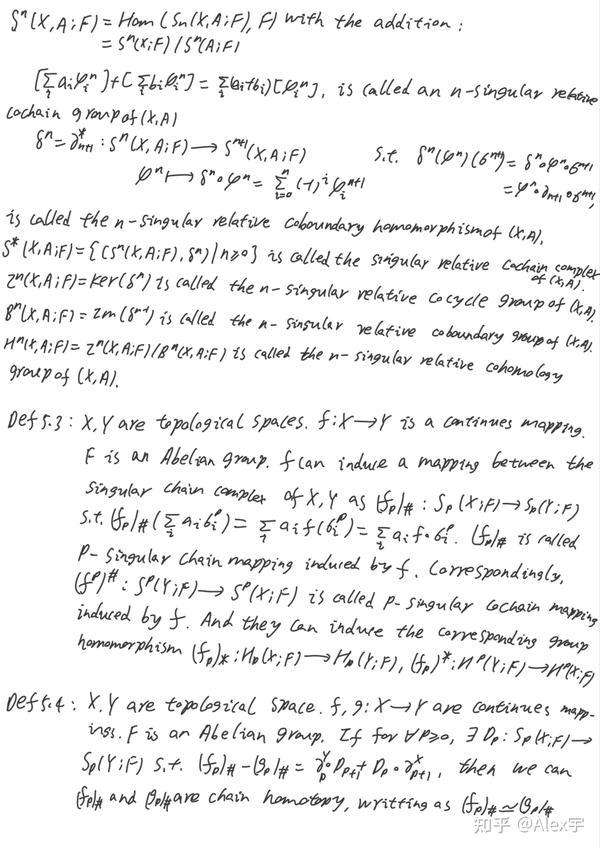 Sⁿ(X,A;F) = Hom(Sn(X,A;F), F) with the addition:
= Sⁿ(X;F)/Sⁿ(A;F)
[Σᵢ aᵢφᵢⁿ]+[Σᵢ bᵢφᵢⁿ] = Σᵢ(aᵢ+bᵢ)[φᵢⁿ], is called an n-singular relative
cochain group of (X,A)
δⁿ = ∂*ₙ₊₁ : Sⁿ(X,A;F) ⟶ Sⁿ⁺¹(X,A;F) s.t. δⁿ(φⁿ)(σⁿ⁺¹) = δⁿ∘φⁿ∘σⁿ⁺¹
φⁿ ⟼ δⁿ∘φⁿ = Σᵢ₌₀ⁿ (-1)ⁱ φᵢⁿ⁺¹ = φⁿ∘∂ₙ₊₁∘σⁿ⁺¹,
is called the n-singular relative coboundary homomorphism of (X,A).
S*(X,A;F) = {(Sⁿ(X,A;F), δⁿ) | n≥0} is called the singular relative cochain complex
of (X,A).
Zⁿ(X,A;F) = Ker(δⁿ) is called the n-singular relative cocycle group of (X,A).
Bⁿ(X,A;F) = Im(δⁿ⁻¹) is called the n-singular relative coboundary group of (X,A).
Hⁿ(X,A;F) = Zⁿ(X,A;F)/Bⁿ(X,A;F) is called the n-singular relative cohomology
group of (X,A).
Def 5.3: X,Y are topological spaces. f: X⟶Y is a continues mapping.
F is an Abelian group. f can induce a mapping between the
singular chain complex of X,Y as (fp)# : Sp(X;F)⟶Sp(Y;F)
s.t. (fp)#(Σᵢ aᵢσᵢᵖ) = Σᵢ aᵢf(σᵢᵖ) = Σᵢ aᵢf∘σᵢᵖ. (fp)# is called
P-singular chain mapping induced by f. Correspondingly,
(fᵖ)# : Sᵖ(Y;F)⟶Sᵖ(X;F) is called p-singular cochain mapping
induced by f. And they can induce the corresponding group
homomorphism (fp)* : Hp(X;F)⟶Hp(Y;F), (fp)* : Hᵖ(Y;F)⟶Hᵖ(X;F)
Def 5.4: X,Y are topological space. f,g: X⟶Y are continues mapp-
ings. F is an Abelian group. If for ∀P≥0, ∃ Dp : Sp(X;F)⟶
Sp(Y;F) s.t. (fp)# - (gp)# = ∂ᵖʸ∘Dp+1 + Dp∘∂ˣp+1, then we can
(fp)# and (gp)# are chain homotopy, writting as (fp)# ≃ (gp)#
知乎 @Alex宇